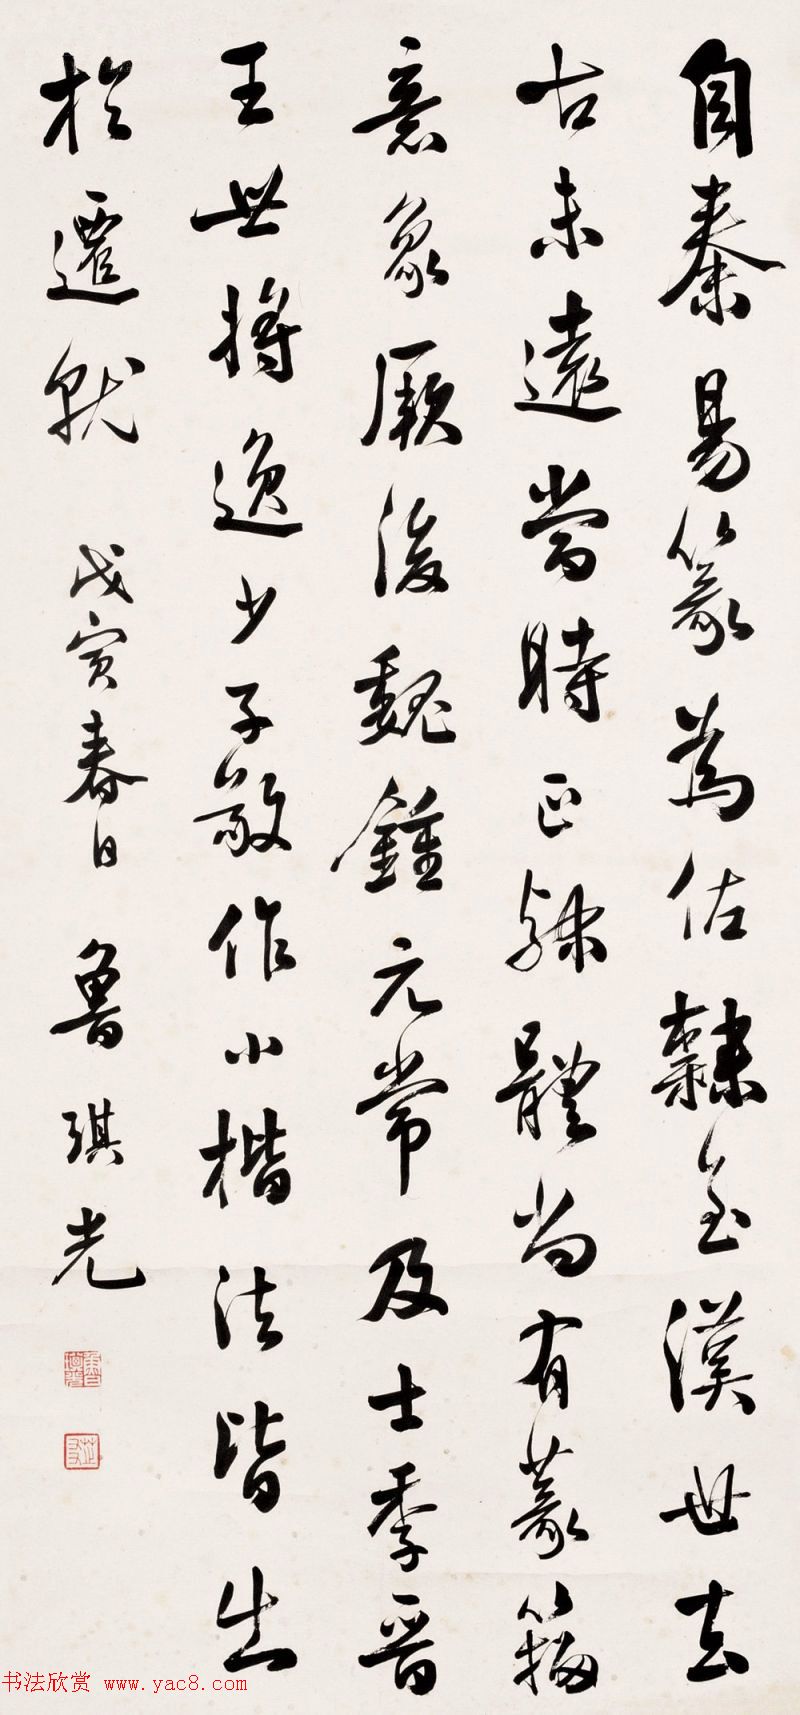 自秦易篆為佐隸至漢世去
古未遠當時正隸體尚有篆籀
意象厥後魏鍾元常及士季晉
王世將逸少子敬作小楷法皆出
於遷就 戊寅春日 魯琪光
书法欣赏 www.yac8.com